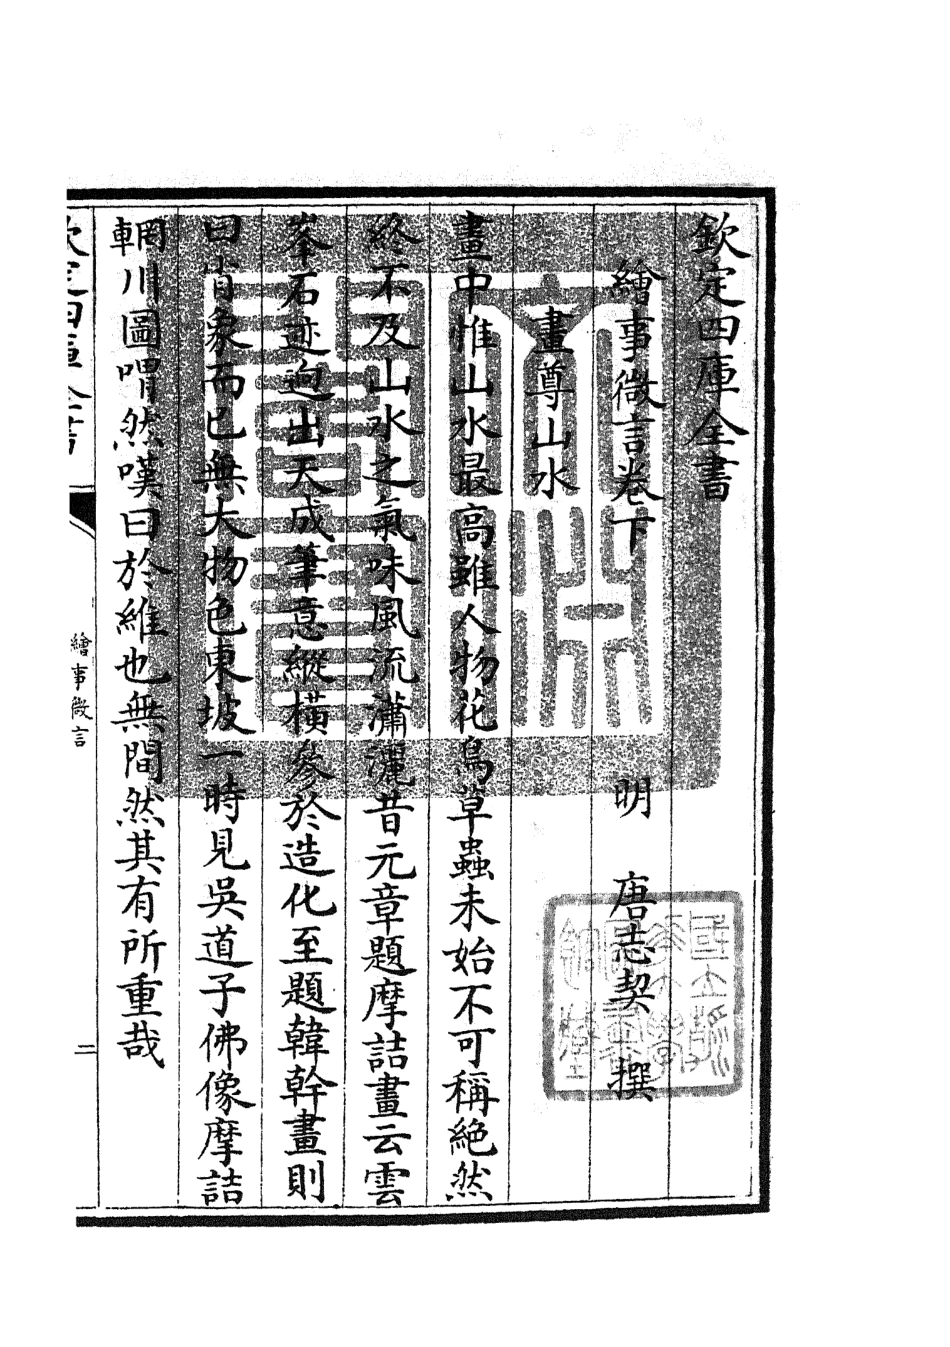 欽定四庫全書
繪事微言卷下
明 唐志契 撰
畫尊山水
畫中惟山水最高雖人物花鳥草蟲未始不可稱絶然
終不及山水之氣味風流瀟灑昔元章題摩詰畫云雲
峯石迹迥出天成筆意縱橫參於造化至題韓幹畫則
曰肖象而已無大物色東坡一時見吳道子佛像摩詰
輞川圖喟然嘆曰於維也無間然其有所重哉
欽定四庫全書
繪事微言
二